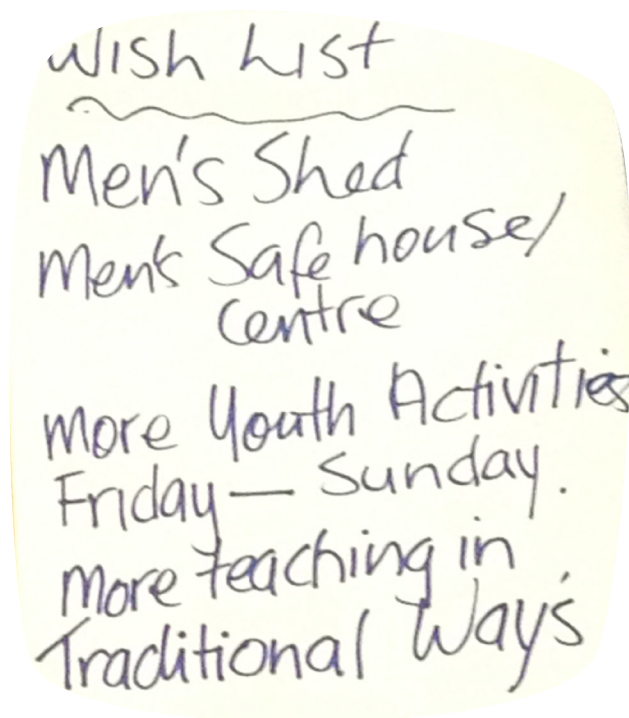 Wish List
Men's Shed
Men's Safe house/
Centre
More Youth Activities
Friday — Sunday.
More teaching in
Traditional Way's